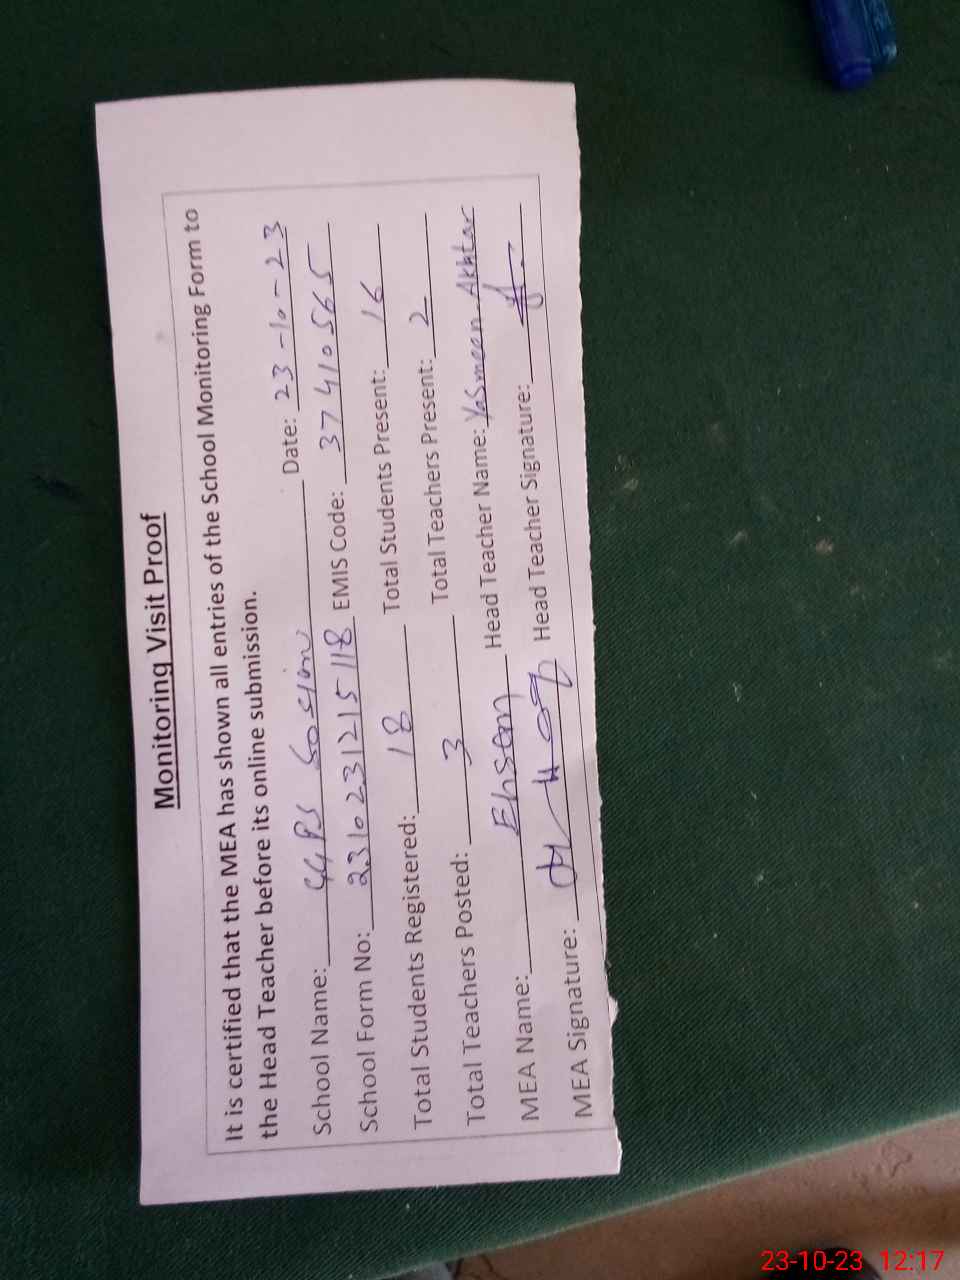 Monitoring Visit Proof
It is certified that the MEA has shown all entries of the School Monitoring Form to
the Head Teacher before its online submission.
School Name: GGPS Date: 23-10-23
School Form No: 2310231215118 EMIS Code: 37410565
Total Students Registered: 18 Total Students Present: 16
Total Teachers Posted: 3 Total Teachers Present: 2
MEA Name: Ehsan Head Teacher Name: Yasmeen Akhtar
MEA Signature: Head Teacher Signature:
23-10-23 12:17